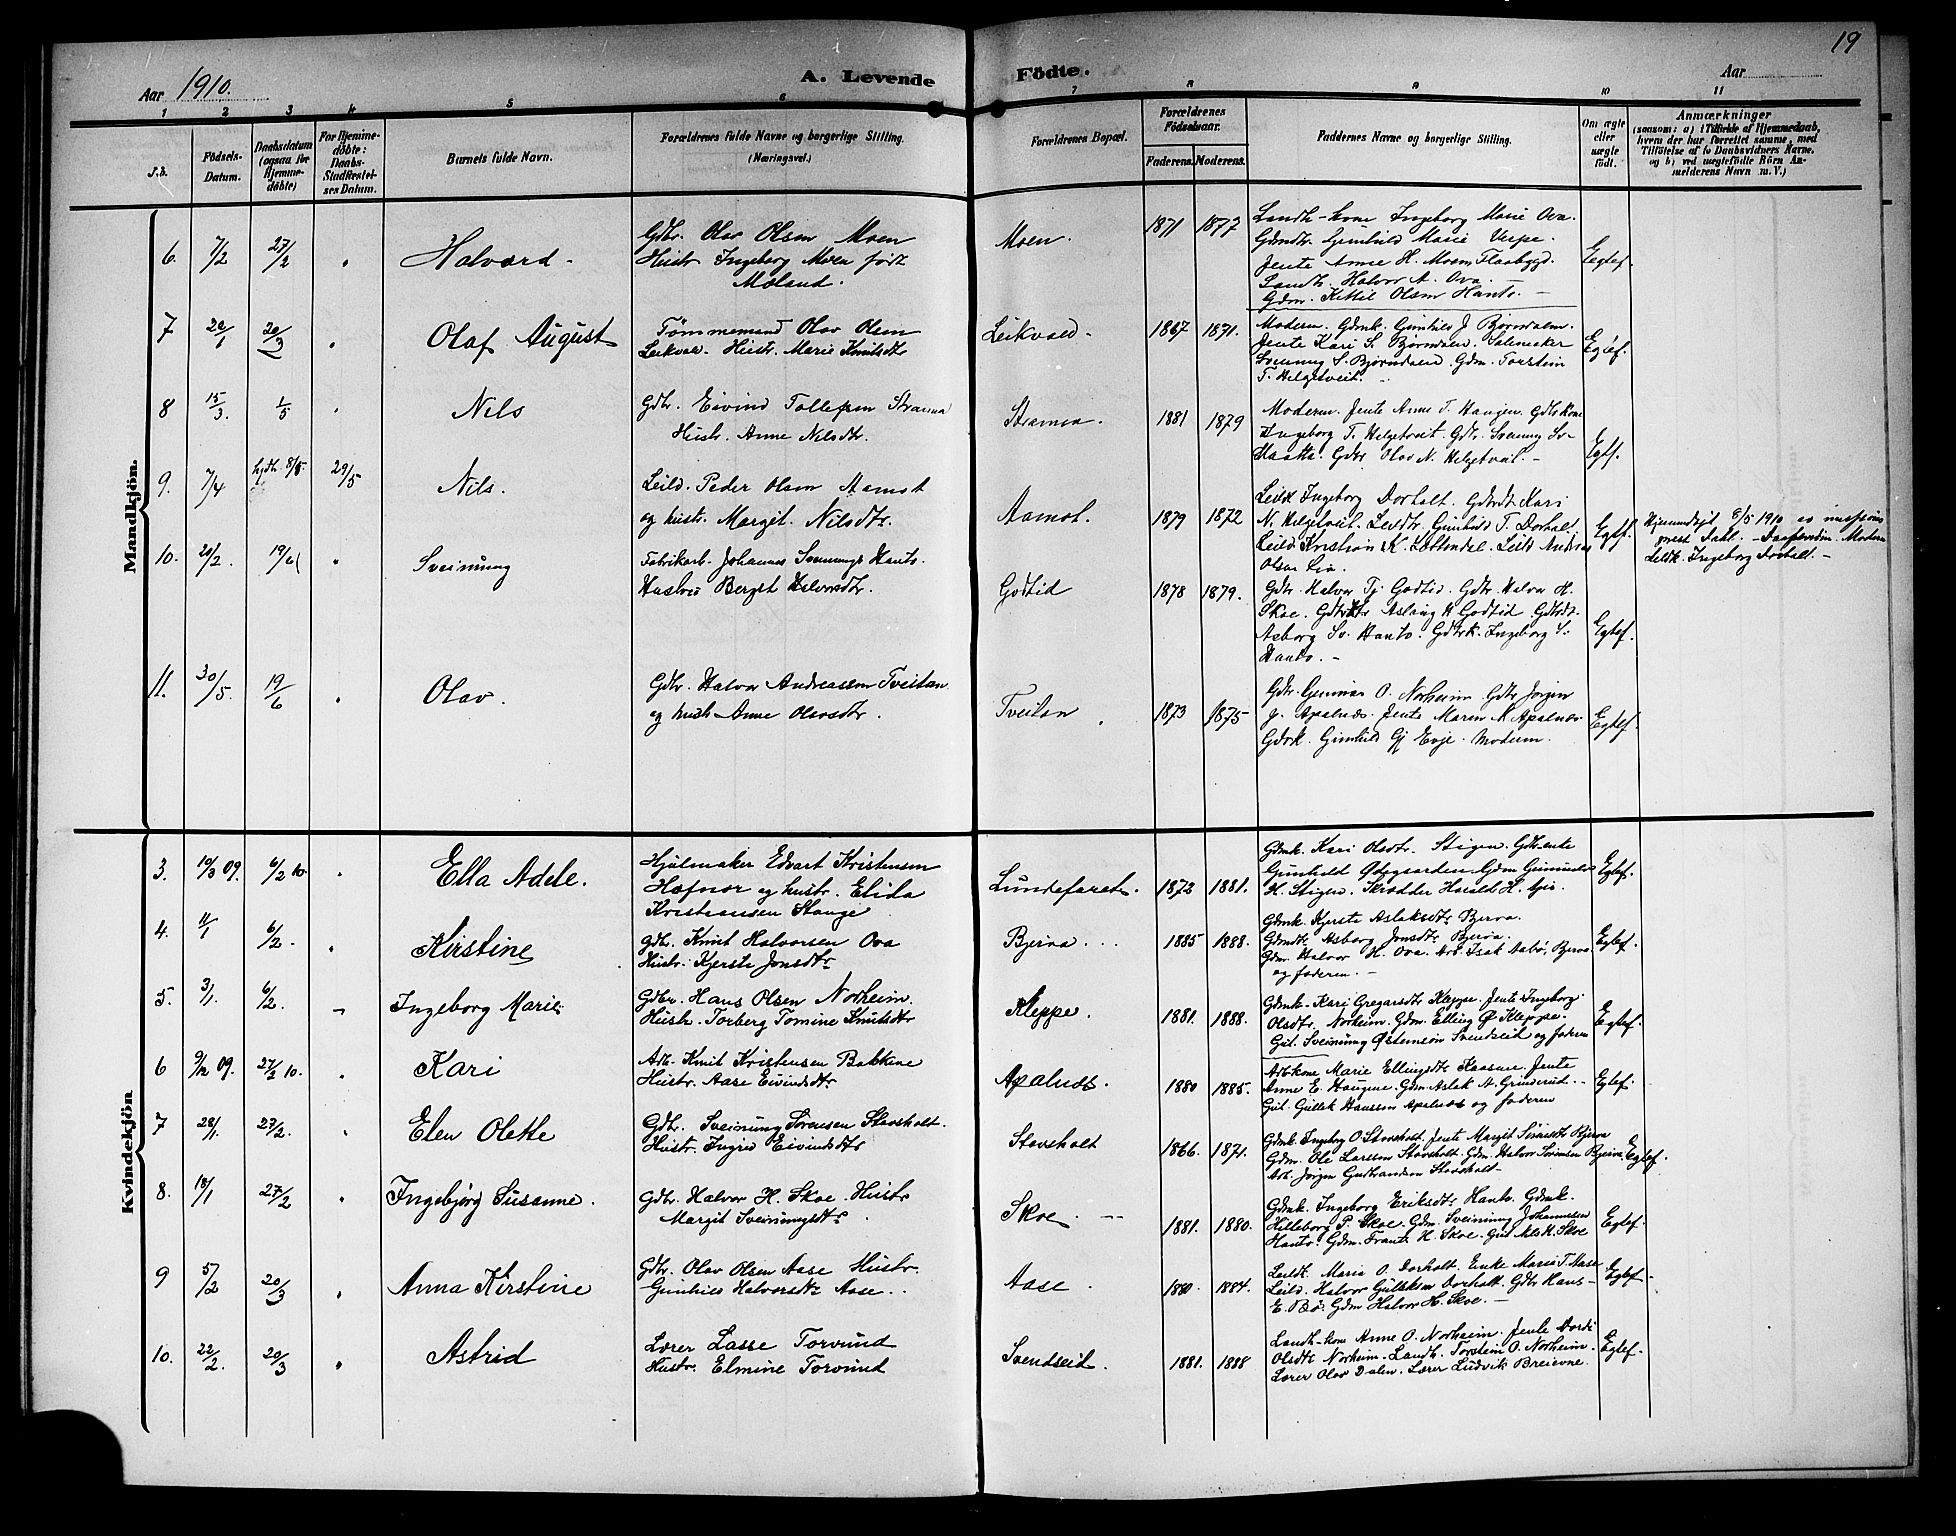 19
Aar 1910.
A. Levende Födte.
Aar
1 2 3 4 5 6 7 8 9 10 11
S.k.
Födsels-
Datum.
Daabsdatum
(ogsaa for
Hjemme-
döbte)
For Hjemme-
döbte:
Daabs-
Stadfæstel-
ses Datum.
Barnets fulde Navn.
Forældrenes fulde Navne og borgerlige Stilling.
(Næringsvei.)
Forældrenes Bopæl.
Forældrenes
Födselsaar.
Faderens. Moderens.
Faddernes Navne og borgerlige Stilling.
Om ægte
eller
uægte
født.
Anmærkninger
(saasom: a) i Tilfælde af Hjemmedaab,
hvem der har forrettet samme, med
Tilföielse af to Daabsvidners Navne,
og b) ved uægtefödte Börn An-
melderens Navn m. V.)
Mandkjön.
6. 7/2 27/2 " Halvard.
Gdbr. Olav Olsen Moen
Hustr. Ingeborg Moen født
Moland.
Moen. 1871 1877
Landh-kone Ingeborg Marie Ova.
Gdmdtr. Gunhild Marie Verpe.
Jente Anne H. Moen Flaabygd.
Landh. Halvor A. Ova.
Gdm. Kittil Olsen Hanto.
Egtef.
7 20/1 20/3 " Olaf August
Tømmermand Olav Olsen
Leikvold. Hustr. Marie Knutsdtr
Leikvold. 1867 1871.
Moderen. Gdmk. Gunhild J. Bjørndalen.
Jente Kari S. Bjørndalen. Salemaker
Sveinung S. Bjørndalen. Gdm. Torstein
T. Helgetveit.
Egtef.
8 15/3 1/5 " Nils
Gdbr. Eivind Tollefsen Strama
Hustr. Anne Nilsdtr.
Straman. 1881 1879
Moderen. Jente Anne T. Haugen. Gdbrkone
Ingeborg T. Helgetveit. Gdbr. Sveinung Sv.
Gdbr Olav N. Helgetveit.
Egtf.
9. 7/4 hjdb. 8/5. 29/5 Nils.
Leild. Peder Olsen Aamot
og hustr. Margit Nilsdtr.
Aamot. 1879 1872
Leildk Ingeborg Dorholt. Kari
N. Helgetveit. Gunhild T. Dorholt
Leild Kristian K. Leild Andreas
Olsen Lia.
Egtf.
Hjemmedøpt 8/5 1910 av
prest Dahl. Moderen
Leildk. Ingeborg Dorholt.
10. 20/2. 19/6 " Sveinung
Fabrikarb. Johannes Sveinungs. Hanto.
Hustru Bergit Halvorsdtr.
Godtid 1878 1879.
Gdbr. Halvor Tj. Godtid. Gdbr. Halvor H.
Skoe. Aslaug H. Godtid.
Asborg Sv. Hanto. Gdbrk. Ingeborg S.
Hanto.
Egtef.
11. 30/5. 19/6 " Olav.
Gdbr. Halvor Andreassen Tveitan
og hustr Anne Olavsdtr.
Tveitan. 1873 1875
Gdbr. Gunnar O. Norheim. Gdbr Jørgen
J. Apalnæs. Jente Maren N. Apalnæs
Gdbrk. Gunhild Gj Evje. Moderen.
Egtef.
Kvindekjön
3. 19/3 09. 6/2 10 " Ella Adele.
Hjulmaker Edvart Kristensen
Hafnor og hustr. Elida
Kristiansen Stange
Lundefaret. 1873 1881.
Gdmk. Kari Olsdtr. Stigen. Gdbrenke
Gunhild Ødegaarden. Gdm Gunnuld
H. Stigen. Skrædder Harald H. Lia.
Egtef.
4. 11/1 6/2. " Kirstine
Gdbr. Knut Halvorsen Ova
Hustr. Kjersti Jonsdtr
Bjerva 1885 1888.
Gdmk. Kjersti Aslaksdtr Bjerva.
Gdmdtr. Asborg Jonsdtr Bjerva.
Gdm. Halvor H. Ova. Arb. Isak Aabø, Bjerva
og faderen.
Egtef.
5. 3/1. 6/2. " Ingeborg Marie
Gdbr. Hans Olsen Norheim.
Hustr. Torberg Tomine Knutsdtr
Kleppe. 1881. 1888.
Gdmk. Kari Gregarsdtr Kleppe. Jente Ingeborg
Olsdtr. Norheim. Gdm. Elling Ø Kleppe.
Gut. Sveinung Østensøn Svendseid og faderen
Egtef.
6 9/12 09. 27/2 10. " Kari
Arb. Knut Kristensen Bakkene
Hustr. Aase Eivindsdtr
Apalnæs. 1880 1885.
Arb.kone Marie Ellingsdtr Kaasene. Jente
Anne E. Haugene. Gdm. Aslak A. Grinderud.
Gut. Gullek Hanssen Apalnæs og faderen
Egtef.
7 28/1. 27/2. " Elen Olette
Gdbr. Sveinung Sørensen Stavsholt.
Hustr. Ingrid Eivindsdtr
Stavsholt 1866. 1871.
Gdmk. Ingeborg O. Stavsholt. Jente Margit Bjerva
Gdm. Ole Larssen Stavsholt. Gdm. Halvor Sørensen Bjerva.
Arb. Jørgen Stavsholt
Egtef.
8. 18/1 27/2 " Ingebjørg Susanne.
Gdbr. Halvor H. Skoe. Hustr
Margit Sveinungsdtr.
Skoe. 1881. 1880.
Gdmk. Ingeborg Eriksdtr Hanto. Gdmk.
Hilleborg P. Skoe. Gdm. Sveinung Johannesen
Hanto. Gdm. Frantz H. Skoe. Gut Nils H. Skoe
Egtef.
9 5/2 20/3 " Anna Kirstine
Gdbr. Olav Olsen Aase Hustr.
Gunhild Halvorsdtr Aase.
Aase. 1880 1884.
Leildk. Maria O. Dorholt. Enke Maria T. Aase
Leild. Halvor Gulleksen Dorholt. Gdbr Hans
E. Bø. Gdm Halvor H. Skoe.
Egtef.
10. 22/2. 20/3 " Astrid
Lærer Lasse Torvund
Hustr. Elmine Torvund
Svendseid. 1881. 1888
Landh-kone Anne O. Norheim. Jente Dordi
Olsdtr Norheim. Landh. Torstein O. Norheim.
Lærer Olav Dalen. Lærer Ludvik Breievne.
Egtef.